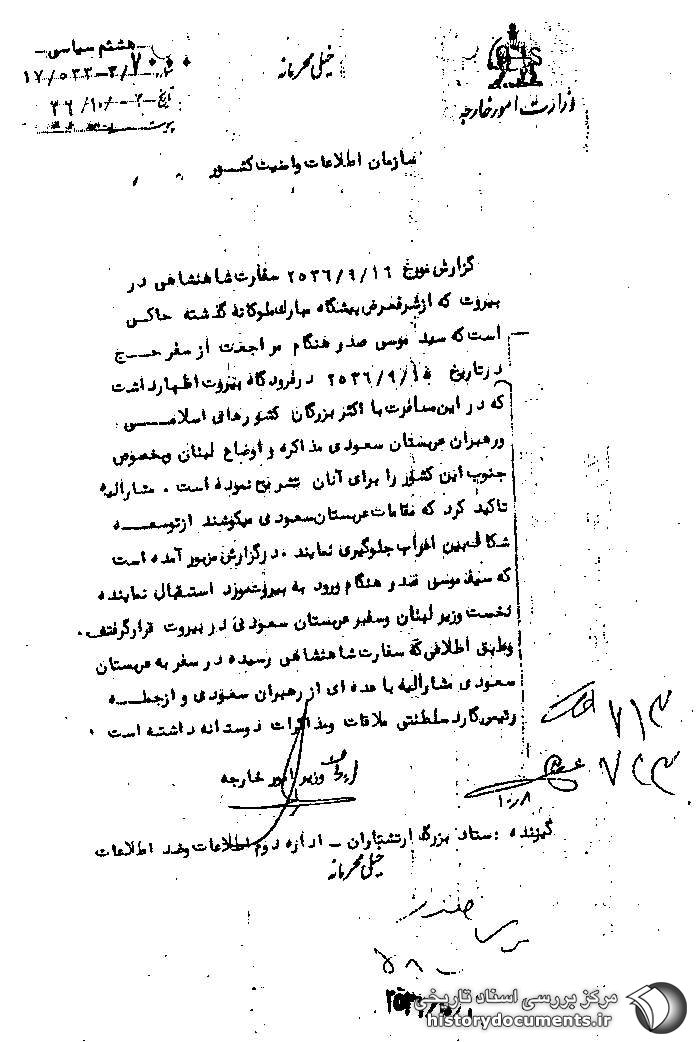 هشتم سیاسی
خیلی محرمانه
وزارت امور خارجه
۱۷/۵۳۳-۳/۷۰۰۰
تاریخ ۳-/۱۰/۳۶
پیوست
سازمان اطلاعات و امنیت کشور
گزارش مورخ ۲۵۳۶/۹/۱۶ سفارت شاهنشاهی در
بیروت که از شرفعرض پیشگاه مبارک ملوکانه گذشته حاکی
است که سید موسی صدر هنگام مراجعت از سفر حج
در تاریخ ۲۵۳۶/۹/۱۵ در فرودگاه بیروت اظهار داشت
که در این مسافرت با اکثر بزرگان کشورهای اسلامی
و رهبران عربستان سعودی مذاکره و اوضاع لبنان و بخصوص
جنوب این کشور را برای آنان تشریح نموده است . مشارالیه
تاکید کرد که مقامات عربستان سعودی میکوشند از توسعه
شکاف بین اعراب جلوگیری نمایند . در گزارش مزبور آمده است
که سید موسی صدر هنگام ورود به بیروت مورد استقبال نماینده
نخست وزیر لبنان و سفیر عربستان سعودی در بیروت قرار گرفته .
و طبق اطلاعی که سفارت شاهنشاهی رسیده در سفر به عربستان
سعودی مشارالیه با عده ای از رهبران سعودی و از جمله
رئیس گارد سلطنتی ملاقات و مذاکرات دوستانه داشته است .
۷۱۳
وزیر امور خارجه
۷۲۳
۱۰/۸
گیرنده : ستاد بزرگ ارتشتاران - اداره دوم اطلاعات و ضد اطلاعات
خیلی محرمانه
مرکز بررسی اسناد تاریخی
historydocuments.ir